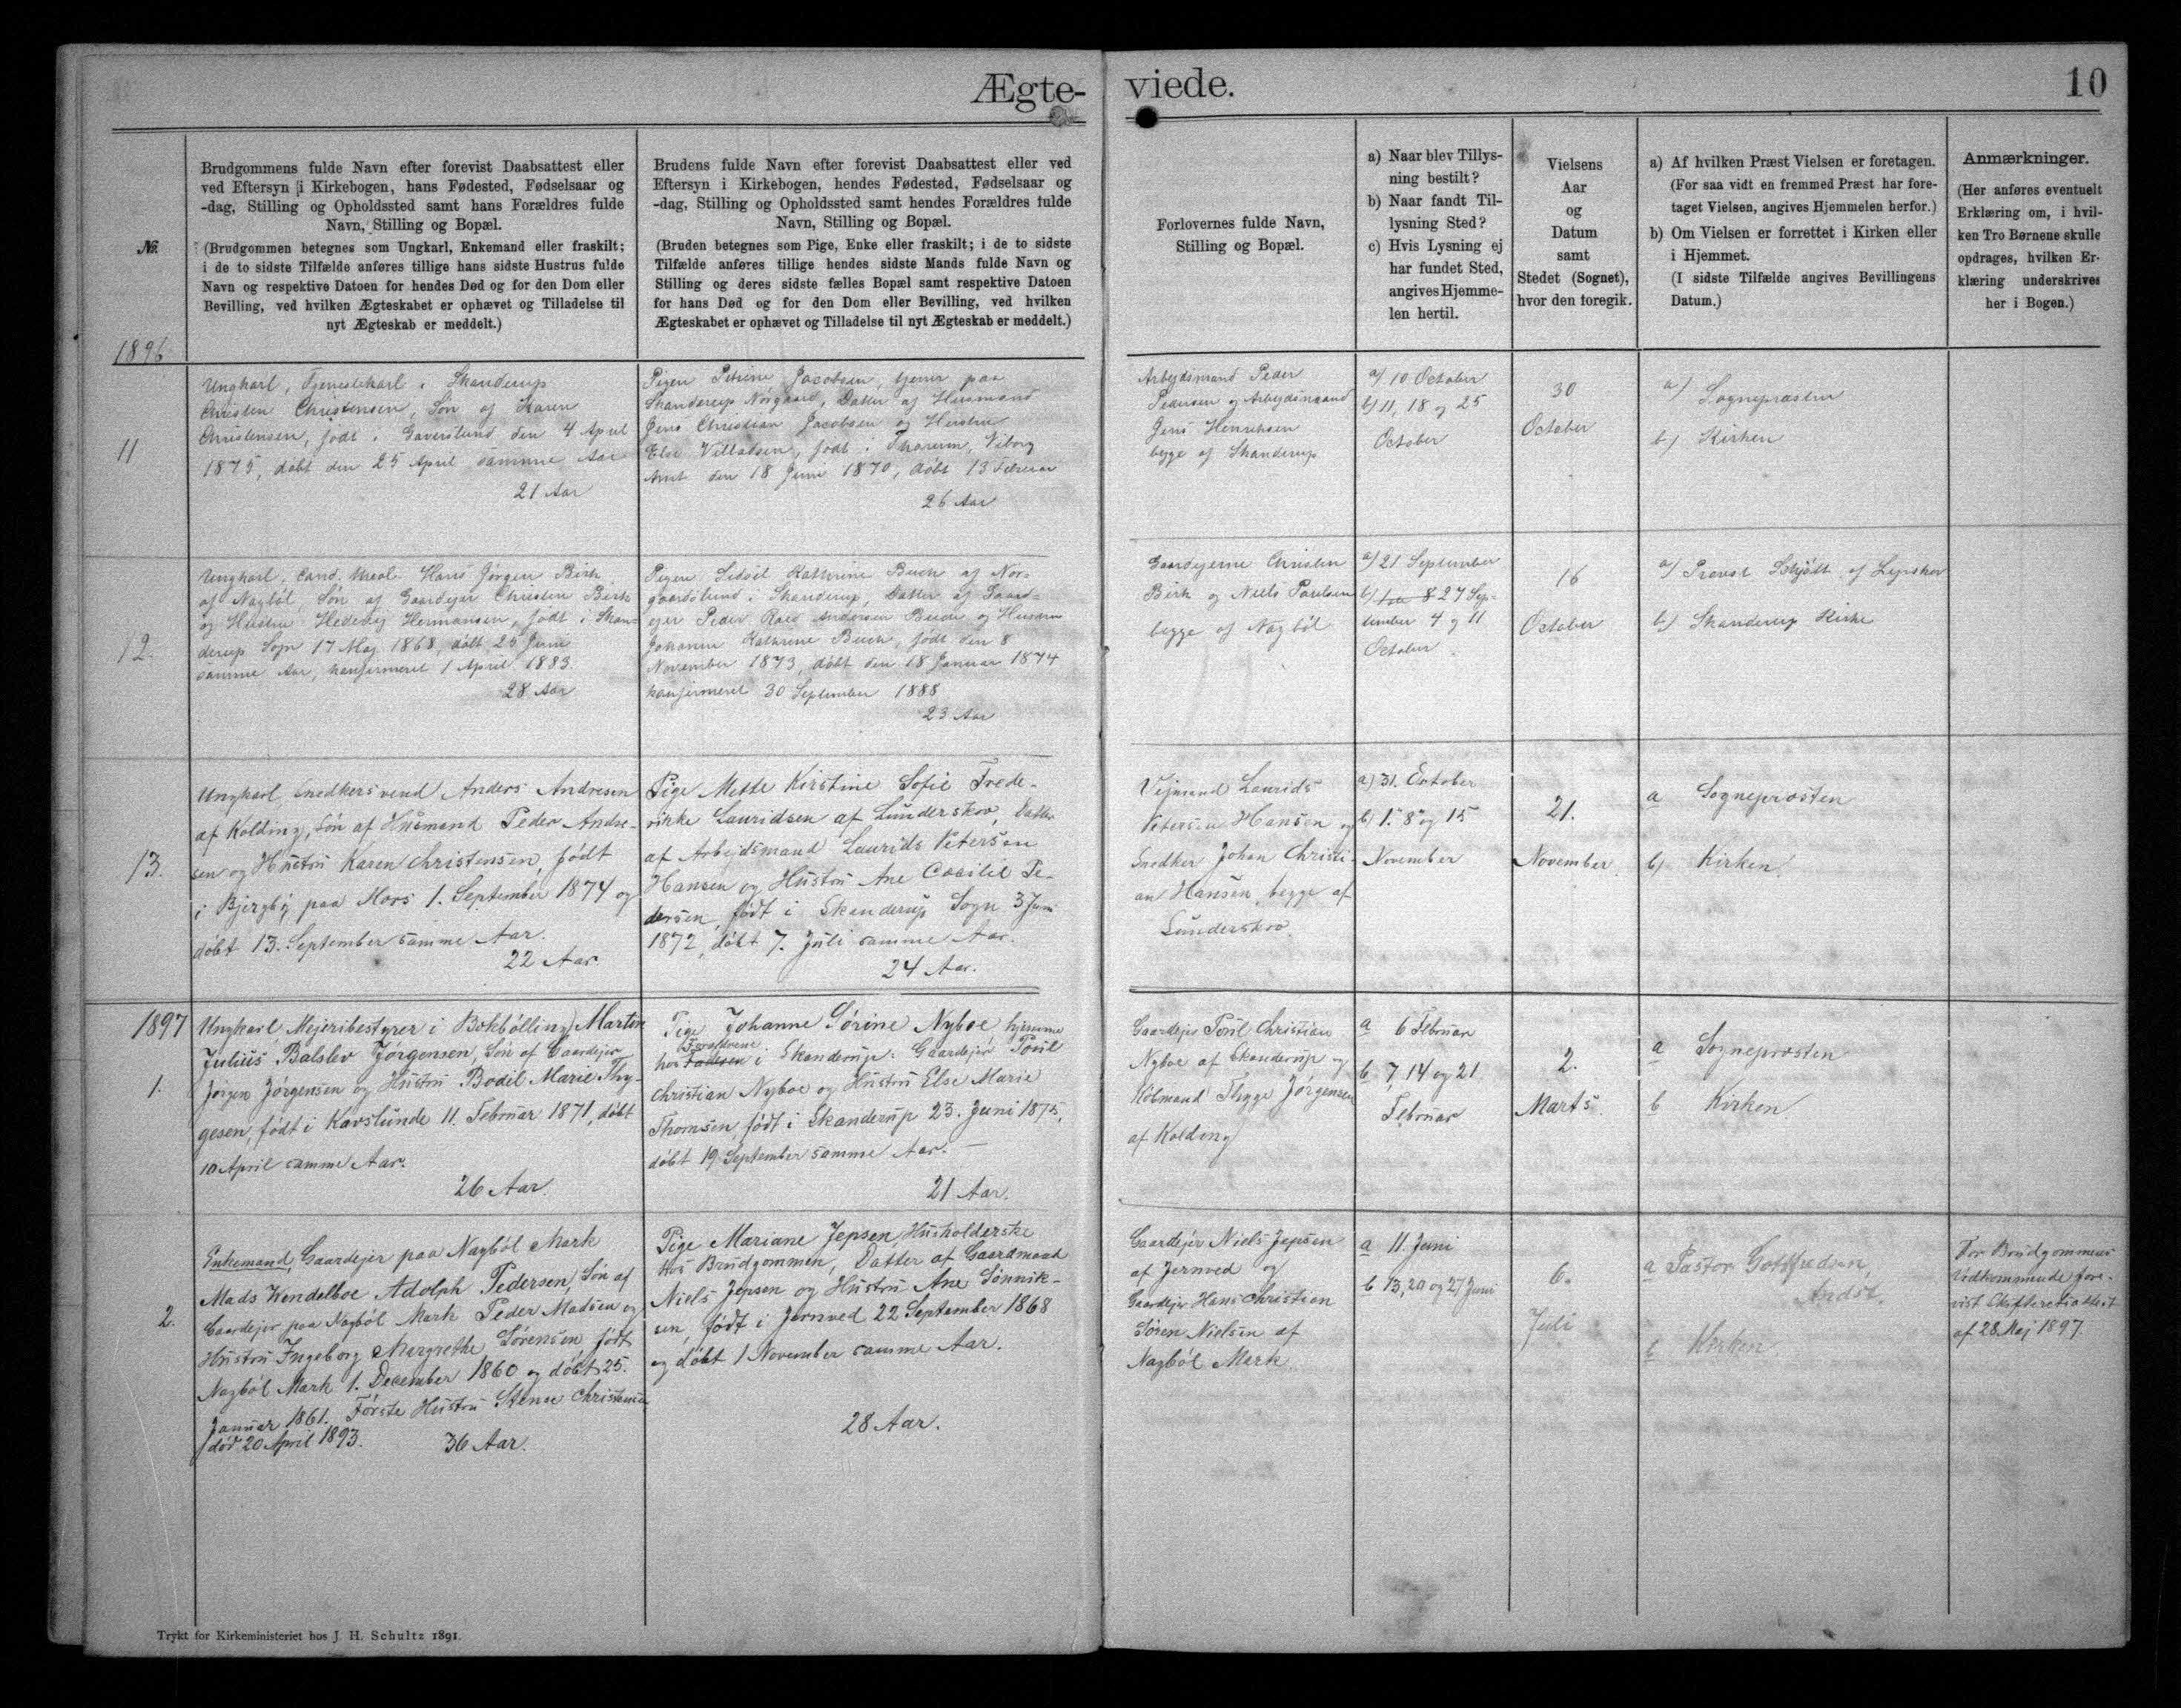 Ægte-
viede.
10
Nr.
Brudgommens fulde Navn efter forevist Daabsattest eller
ved Eftersyn i Kirkebogen, hans Fødested, Fødselsaar og
-dag, Stilling og Opholdssted samt hans Forældres fulde
Navn, Stilling og Bopæl.
(Brudgommen betegnes som Ungkarl, Enkemand eller fraskilt;
i de to sidste Tilfælde anføres tillige hans sidste Hustrus fulde
Navn og respektive Datoen for hendes Død og for den Dom eller
Bevilling, ved hvilken Ægteskabet er ophævet og Tilladelse til
nyt Ægteskab er meddelt.)
Brudens fulde Navn efter forevist Daabsattest eller ved
Eftersyn i Kirkebogen, hendes Fødested, Fødselsaar og
-dag, Stilling og Opholdssted samt hendes Forældres fulde
Navn, Stilling og Bopæl.
(Bruden betegnes som Pige, Enke eller fraskilt; i de to sidste
Tilfælde anføres tillige hendes sidste Mands fulde Navn og
Stilling og deres sidste fælles Bopæl samt respektive Datoen
for hans Død og for den Dom eller Bevilling, ved hvilken
Ægteskabet er ophævet og Tilladelse til nyt Ægteskab er meddelt.)
Forlovernes fulde Navn,
Stilling og Bopæl.
a) Naar blev Tillys-
ning bestilt?
b) Naar fandt Til-
lysning Sted?
c) Hvis Lysning ej
har fundet Sted,
angives Hjemme-
len hertil.
Vielsens
Aar
og
Datum
samt
Stedet (Sognet),
hvor den foregik.
a) Af hvilken Præst Vielsen er foretagen.
(For saa vidt en fremmed Præst har fore-
taget Vielsen, angives Hjemmelen herfor.)
b) Om Vielsen er forrettet i Kirken eller
i Hjemmet.
(I sidste Tilfælde angives Bevillingens
Datum.)
Anmærkninger.
(Her anføres eventuelt
Erklæring om, i hvil-
ken Tro Børnene skulle
opdrages, hvilken Er-
klæring underskrives
her i Bogen.)
1896
11
Ungkarl, Tjenestekarl i Skanderup
Christen Christensen, Søn af Karen
Christensen, født i Gaverslund den 4 April
1875, døbt den 25 April samme Aar
21 Aar
Pigen Petrine Jacobsen, tjener paa
Skanderup Norgaard, Datter af Husmand
Jens Christian Jacobsen og Hustru
Else Villadsen, født i Thorum, Viborg
Amt den 18 Juni 1870, døbt 13 Februar
26 Aar
Arbejdsmand Peder
Pedersen og Arbejdsmand
Jens Henriksen
begge af Skanderup
a) 10 October
b) 11, 18 og 25
October
30
October
a) Sognepræsten
b) Kirken
12.
Ungkarl, Cand. theol. Hans Jørgen Birk
af Nagbøl, Søn af Gaardejer Christen Birk
og Hustru Hedevig Hermansen, født i Skan-
derup Sogn 17 Maj 1868, døbt 25 Juni
samme Aar, konfirmeret 1 April 1883.
28 Aar
Pigen Sidsel Kathrine Buch af Nor-
gaardslund i Skanderup, Datter af Gaard-
ejer Peder Andersen Buch og Hustru
Johanne Kathrine Buch, født den 8
November 1873, døbt den 18 Januar 1874
konfirmeret 30 September 1888
23 Aar
Gaardejerne Christen
Birk og Niels Poulsen
begge af Nagbøl
a) 21 September
b) 27 Sep-
tember 4 og 11
October.
16
October
a) Provst Schjødt af Lejrskov
b) Skanderup Kirke
13.
Ungkarl, Snedkersvend Anders Andresen
af Kolding, Søn af Husmand Peder Andre-
sen og Hustru Karen Christensen, født
i Bjergby paa Mors 1. September 1874 og
døbt 13. September samme Aar.
22 Aar.
Pige Mette Kirstine Sofie Frede-
rikke Lauridsen af Lunderskov, Datter
af Arbejdsmand Laurids Petersen
Hansen og Hustru Ane Cæcilie Pe-
dersen, født i Skanderup Sogn 3 Juni
1872, døbt 7. Juli samme Aar.
24 Aar.
Vejmand Laurids
Petersen Hansen og
Snedker Johan Christi-
an Hansen, begge af
Lunderskov.
a) 31. October
b) 1. 8 og 15
November
21.
November.
a Sognepræsten
b) Kirken.
1897
1.
Ungkarl, Mejeribestyrer i Bokbølling, Martin
Julius Balslev Jørgensen, Søn af Gaardejer
Jørgen Jørgensen og Hustru Bodil Marie Thy-
gesen, født i Karslunde 11. Februar 1871, døbt
10 April samme Aar.
26 Aar.
Pige Johanne Sørine Nyboe hjemme
Forældrene
hos Faderen i Skanderup: Gaardejer Poul
Christian Nyboe og Hustru Else Marie
Thomsen, født i Skanderup 23. Juni 1875,
døbt 19. September samme Aar.
21 Aar.
Gaardejer Poul Christian
Nyboe af Skanderup og
Kobmand Thyge Jørgensen
af Kolding
a 6 Februar
b 7, 14 og 21
Februar
2.
Marts.
a Sognepræsten
b Kirken.
2.
Enkemand, Gaardejer paa Nagbøl Mark
Mads Wendelboe Adolph Pedersen, Søn af
Gaardejer paa Nagbøl Mark Peder Madsen og
Hustru Ingeborg Margrethe Sørensen, født
Nagbøl Mark 1. December 1860 og døbt 25.
Januar 1861. Første Hustru Stense Christensen
død 20 April 1893. 36 Aar.
Pige Mariane Jepsen, Husholderske
hos Brudgommen, Datter af Gaardmand
Niels Jepsen og Hustru Ane Sønnik-
sen, født i Jernved 22 September 1868
og døbt 1 November samme Aar.
28 Aar.
Gaardejer Niels Jepsen
af Jernved og
Gaardejer Hans Christian
Søren Nielsen af
Nagbøl Mark
a 11. Juni
b 13, 20 og 27 Juni
6.
Juli
a Pastor Gotfredsen,
Andst.
b Kirken.
For Brudgommens
Vedkommende fore-
vist Skifteretsattest
af 28 Maj 1897.
Trykt for Kirkeministeriet hos J. H. Schultz 1891.